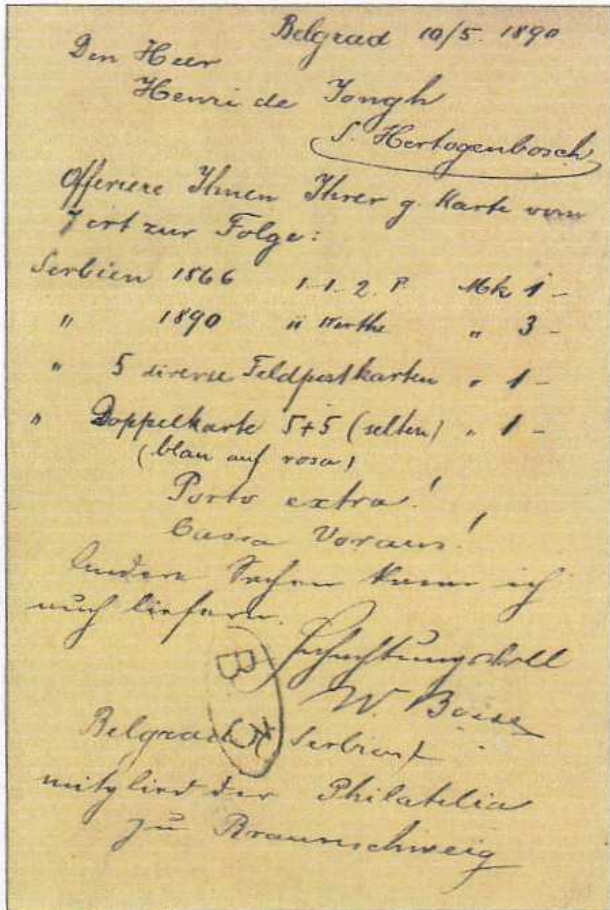 Belgrad 10/5. 1890
Den Heer
Henri de Jongh
S. Hertogenbosch
Offeriere Ihnen Ihrer g. Karte vom
zur Folge:
Serbien 1866 1-1-2. P. Mk 1-
" 1890 Werthe " 3-
" 5 diverse Feldpostkarten " 1-
" Doppelkarte 5+5 (selten) " 1-
(blau auf rosa)
Porto extra!
Cassa Voraus!
Andere Sachen kann ich
auch liefern.
Hochachtungsvoll
W.
B K
Belgrad (Serbien)
mitglied der Philatelia
zu Braunschweig